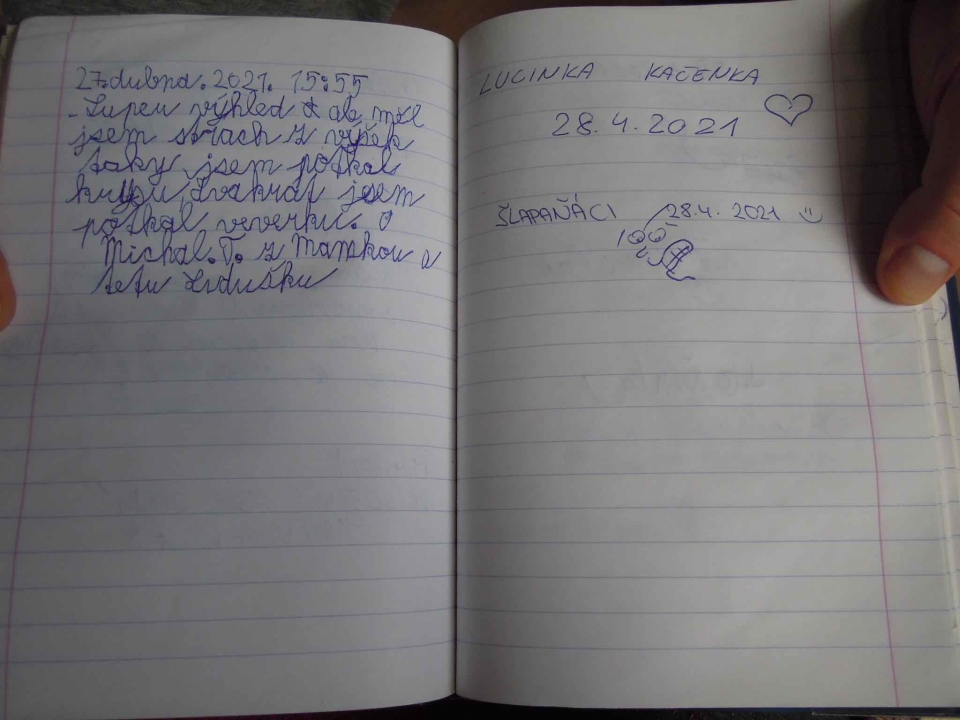 27.dubna.2021. 15:55
-Supeu výhled a ale měl
jsem strach z výšek
taky jsem potkal
krysu dvakrát jsem
potkal veverku.
Michal.T. z Mamkou a
tetu Lidušku
LUCINKA KAČENKA
28.4.2021
ŠLAPAŇÁCI 28.4. 2021